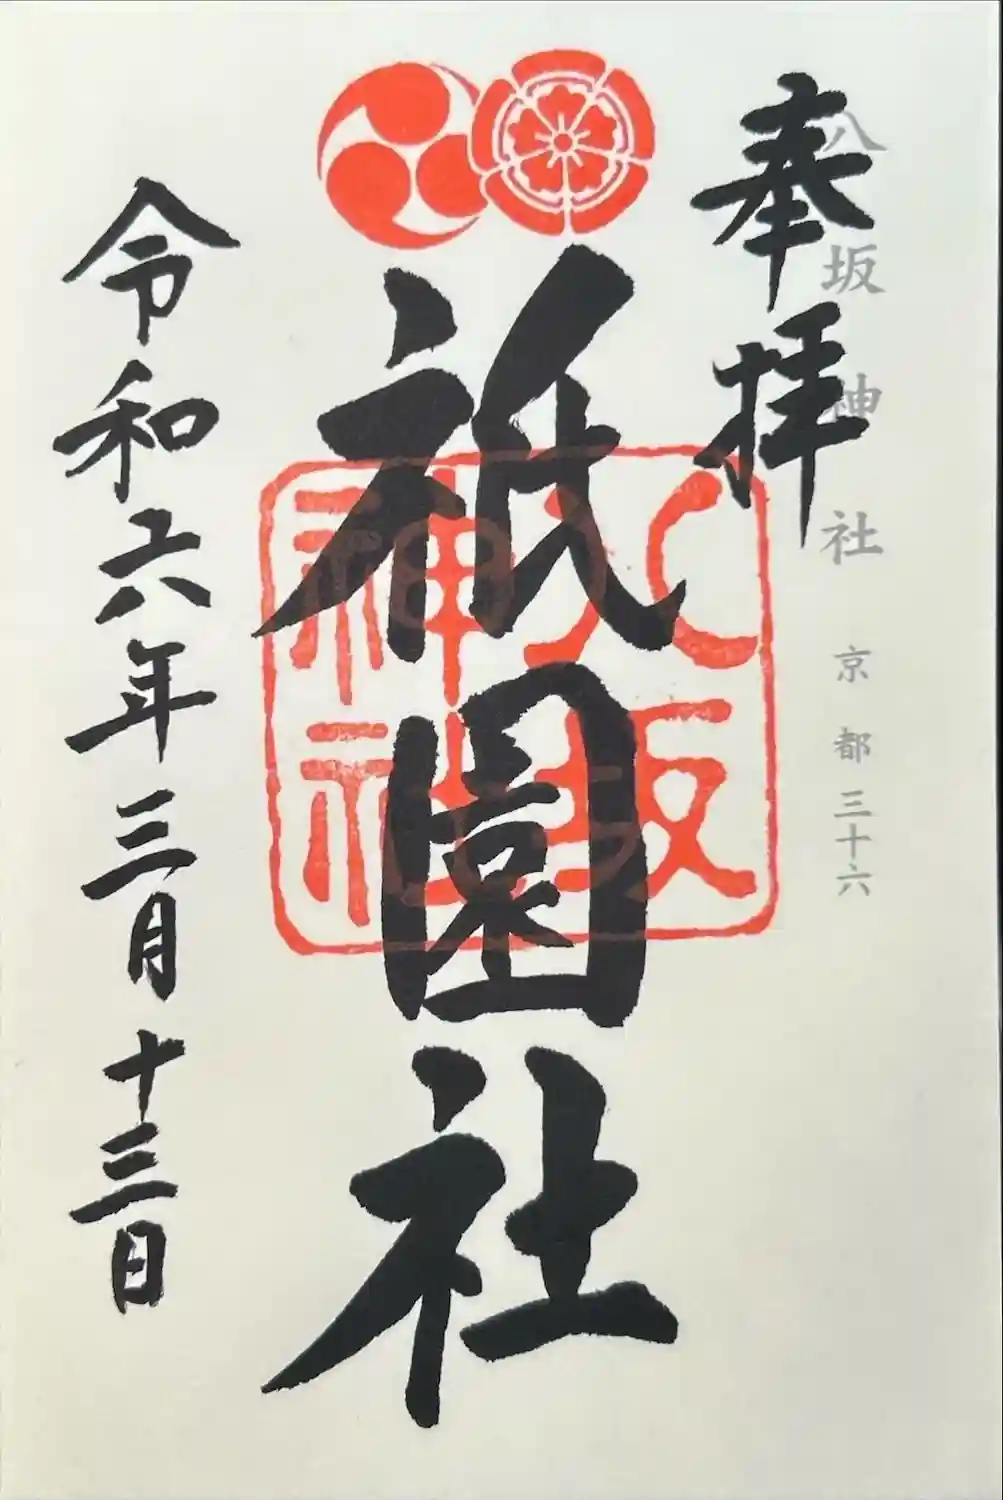 八坂神社 京都三十六
奉拝
祇園社
八坂神社
令和六年三月十三日